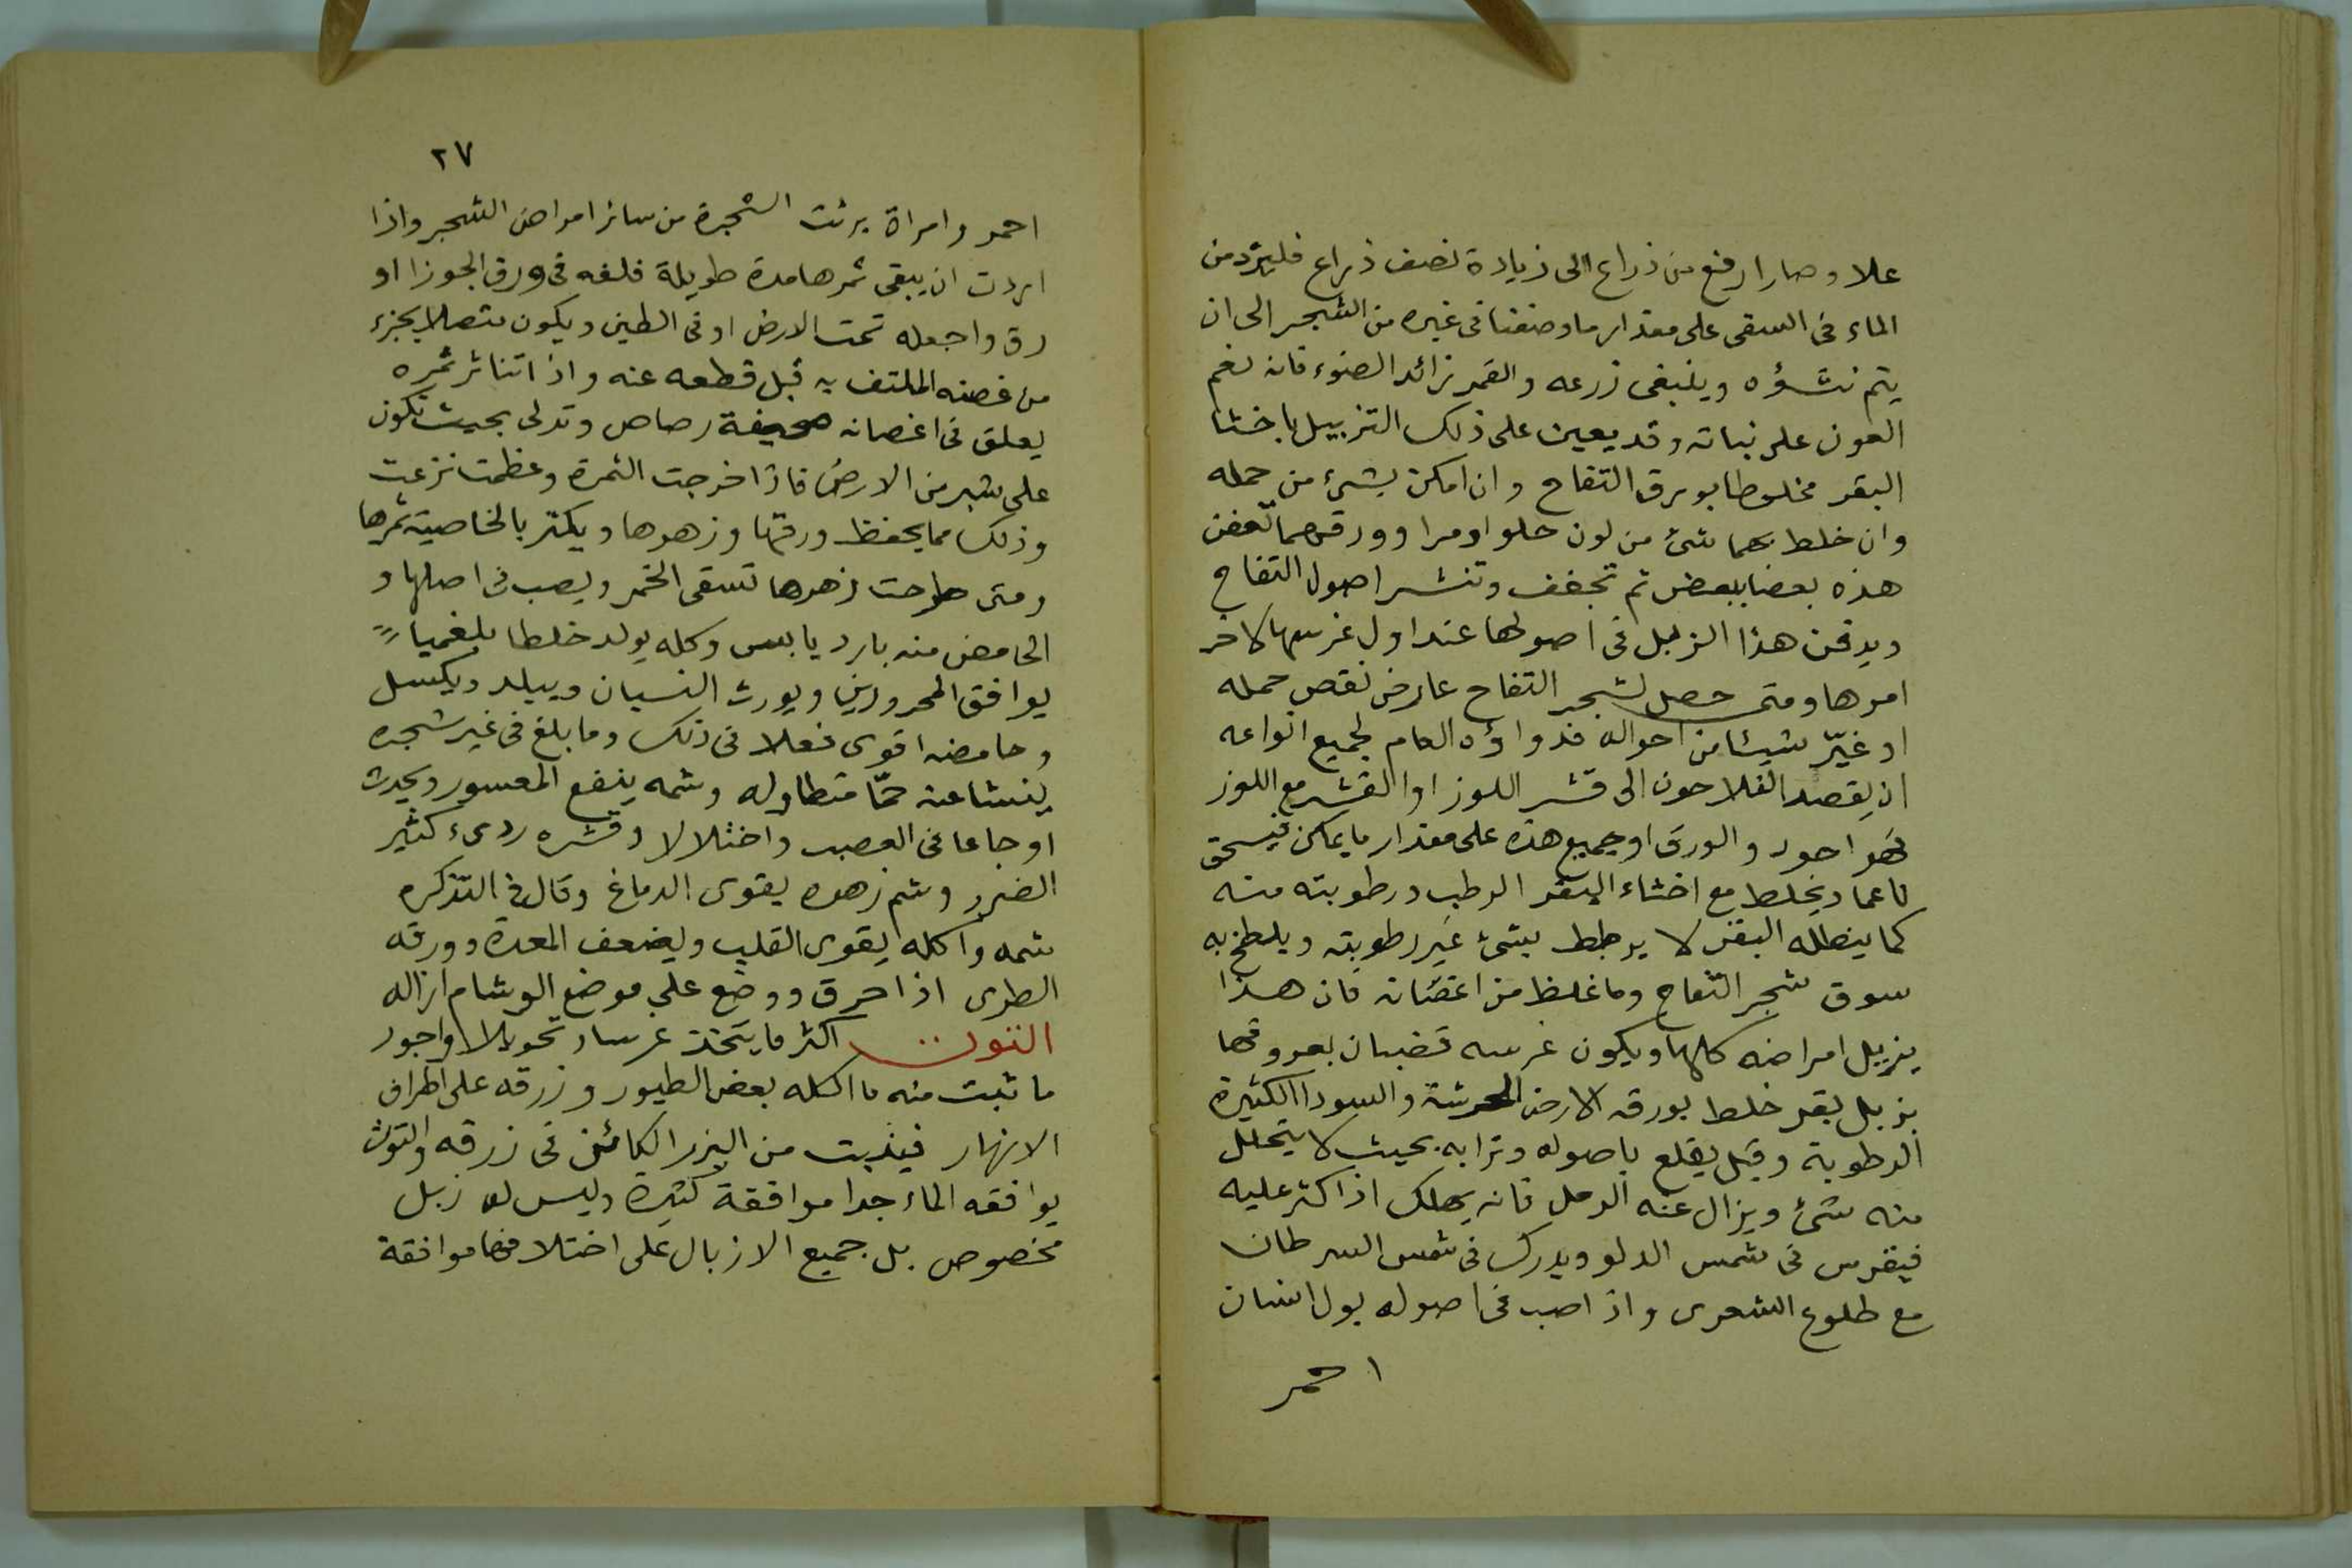 علا وصار ارفع من ذراع الى زيادة نصف ذراع فليزد من
الماء فى السقى على مقدار ما وصفنا فى غيره من الشجر الى ان
يتم نشؤه وينبغى زرعه والقمر زائد الضوء فانه نعم
العون على نباته وقد يعين على ذلك التزبيل باخثا
البقر مخلوطا بورق التفاح وان امكن بشئ من حمله
وان خلط بهما شئ من لون حلو او مرا وورقهما تعفن
هذه بعضا ببعض ثم تجفف وتنشر اصول التفاح
ويدفن هذا الزبل فى اصولها عند اول غرسها لاخر
امرها ومتى حصل لشجر التفاح عارض نقص حمله
او غيّر شيئا من احواله فدواؤه العام لجميع انواعه
ان يقصد الفلاحون الى قشر اللوز او القشر مع اللوز
فهو اجود والورق او جميع هذه على مقدار ما يمكن فيسحق
ناعما ويخلط مع اخثاء البقر الرطب ورطوبته منه
كما ينطله البقر لا يرطط بشئ غير رطوبته ويلطخ به
سوق شجر التفاح وما غلظ من اغصانه فان هذا
يزيل امراضه كلها ويكون غرسه قضبان بعروقها
بزبل بقر خلط بورقه الارض الحرشة والسودا الكثيرة
الرطوبة وقيل يقلع باصوله وترابه بحيث لا يتحلل
منه شئ ويزال عنه الرمل فانه يهلك اذا كثر عليه
فيغرس فى شمس الدلو ويدرك فى شمس السرطان
مع طلوع الشعرى واذا صب فى اصوله بول انسان
احمر
٢٧
احمر وامراة برئت الشجرة من سائر امراض الشجر واذا
اردت ان يبقى ثمرها مدة طويلة فلفه فى ورق الجوز او
رق واجعله تحت الارض او فى الطين ويكون متصلا بجزء
من غصنه الملتف به قبل قطعه عنه واذا تناثر ثمره
يعلق فى اغصانه صحيفة رصاص وتدلى بحيث تكون
على شبر من الارض فاذا خرجت الثمرة وعظمت نزعت
وذلك مما يحفظ ورقتها وزهرها ويكثر بالخاصية ثمرها
ومتى طرحت زهرها تسقى الخمر ويصب فى اصلها و
الحامض منه بارد يابس وكله يولد خلطا بلغميا
يوافق المحرورين ويورث النسيان ويبلد ويكسل
وحامضه اقوى فعلا فى ذلك وما بلغ فى غير شجره
ينشا عنه حمّا متطاوله وشمه ينفع المعسور ويحدث
اوجاعا فى العصب واختلالا وقشره ردىء كثير
الضرر وشم زهره يقوى الدماغ وقال فى التذكره
شمه واكله يقوى القلب ويضعف المعدة وورقه
الطرى اذا حرق ووضع على موضع الوشام ازاله
التوت اكثر ما يتخذ غرسا وتحويلا واجود
ما نبت منه ما اكله بعض الطيور وزرقه على اطراف
الانهار فينبت من البزر الكائن فى زرقه والتوت
يوافقه الماء جدا موافقة كثيرة وليس له زبل
مخصوص بل جميع الازبال على اختلافها موافقة